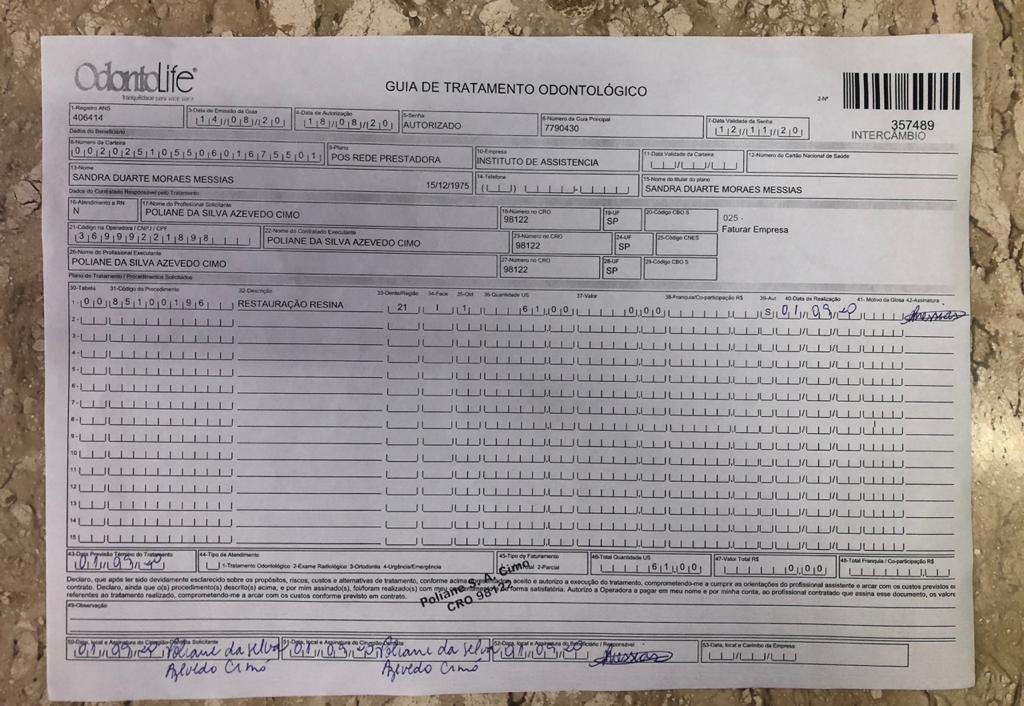 OdontoLife®
Tranquilidade para você sorrir
GUIA DE TRATAMENTO ODONTOLÓGICO
2-Nº
357489
INTERCÂMBIO
1-Registro ANS
406414
3-Data de Emissão da Guia
14/08/20
4-Data de Autorização
18/08/20
5-Senha
AUTORIZADO
6-Número da Guia Principal
7790430
7-Data Validade da Senha
12/11/20
Dados do Beneficiário
8-Número da Carteira
00202510550601675501
9-Plano
POS REDE PRESTADORA
10-Empresa
INSTITUTO DE ASSISTENCIA
11-Data Validade da Carteira
12-Número do Cartão Nacional de Saúde
13-Nome
SANDRA DUARTE MORAES MESSIAS
15/12/1975
14-Telefone
15-Nome do titular do plano
SANDRA DUARTE MORAES MESSIAS
Dados do Contratado Responsável pelo Tratamento
16-Atendimento a RN
N
17-Nome do Profissional Solicitante
POLIANE DA SILVA AZEVEDO CIMO
18-Número no CRO
98122
19-UF
SP
20-Código CBO S
025 -
Faturar Empresa
21-Código na Operadora / CNPJ / CPF
36999221898
22-Nome do Contratado Executante
POLIANE DA SILVA AZEVEDO CIMO
23-Número no CRO
98122
24-UF
SP
25-Código CNES
26-Nome do Profissional Executante
POLIANE DA SILVA AZEVEDO CIMO
27-Número no CRO
98122
28-UF
SP
29-Código CBO S
Plano de Tratamento / Procedimentos Solicitados
30-Tabela 31-Código do Procedimento 32-Descrição 33-Dente/Região 34-Face 35-Qtd 36-Quantidade US 37-Valor 38-Franquia/Co-participação R$ 39-Aut 40-Data de Realização 41- Motivo da Glosa 42-Assinatura
1- 00 85100196 RESTAURAÇÃO RESINA 21 I 1 61 00 0 00 S 01/09/20 Messias
2-
3-
4-
5-
6-
7-
8-
9-
10
11
12
13
14
15
43-Data Previsão Término do Tratamento
01/09/20
44-Tipo de Atendimento
1-Tratamento Odontológico 2-Exame Radiológico 3-Ortodontia 4-Urgência/Emergência
45-Tipo de Faturamento
2-Parcial
46-Total Quantidade US
61 00
47-Valor Total R$
0 00
48-Total Franquia / Co-participação R$
Declaro, que após ter sido devidamente esclarecido sobre os propósitos, riscos, custos e alternativas de tratamento, conforme acima aceito e autorizo a execução do tratamento, comprometendo-me a cumprir as orientações do profissional assistente e arcar com os custos previstos em
contrato. Declaro, ainda que o(s) procedimento(s) descrito(s) acima, e por mim assinado(s), foi/foram realizado(s) com meu forma satisfatória. Autorizo a Operadora a pagar em meu nome e por minha conta, ao profissional contratado que assina esse documento, os valores
referentes ao tratamento realizado, comprometendo-me a arcar com os custos conforme previsto em contrato.
Poliane S. A. Cimo
CRO 98122
49-Observação
50-Data, local e Assinatura do Cirurgião-Dentista Solicitante
01/09/20 Poliane da Silva
Azevedo Cimó
51-Data, local e Assinatura do Cirurgião-Dentista
01/09/20 Poliane da Silva
Azevedo Cimó
52-Data, local e Assinatura do Beneficiário / Responsável
01/09/20 Messias
53-Data, local e Carimbo da Empresa